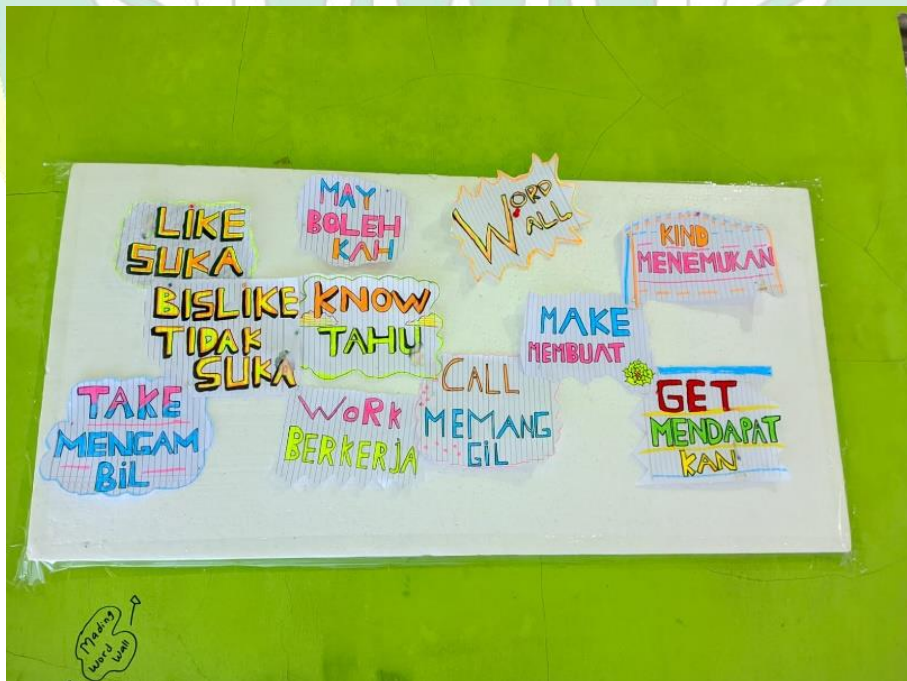 LIKE
SUKA
MAY
BOLEH
KAH
WORD
WALL
KIND
MENEMUKAN
BISLIKE
TIDAK
SUKA
KNOW
TAHU
MAKE
MEMBUAT
TAKE
MENGAM
BIL
WORK
BERKERJA
CALL
MEMANG
GIL
GET
MENDAPAT
KAN
Mading
Word
Wall